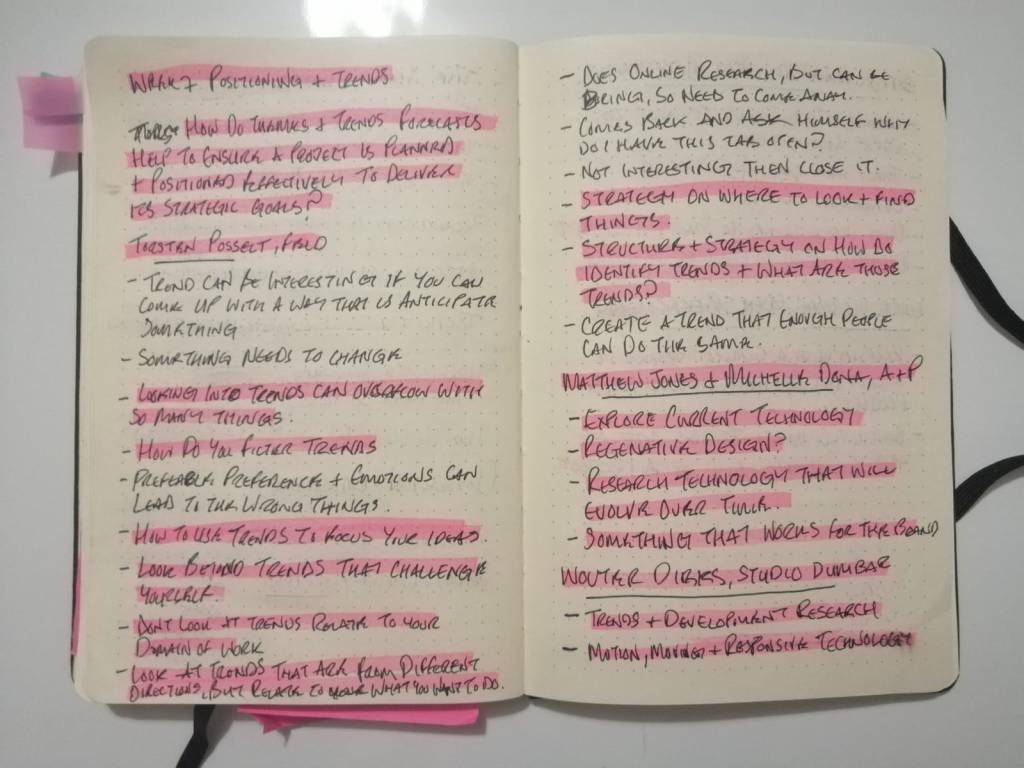 WEEK 7 POSITIONING + TRENDS
HOW DO THEMES + TRENDS FORECASTS
HELP TO ENSURE A PROJECT IS PLANNED
+ POSITIONED EFFECTIVELY TO DELIVER
ITS STRATEGIC GOALS?
TORSTEN POSSELT, FELD
- TREND CAN BE INTERESTING IF YOU CAN
COME UP WITH A WAY THAT IS ANTICIPATE
SOMETHING
- SOMETHING NEEDS TO CHANGE
- LOOKING INTO TRENDS CAN OVERFLOW WITH
SO MANY THINGS.
- HOW DO YOU FILTER TRENDS
- PREFERENCE + EMOTIONS CAN
LEAD TO THE WRONG THINGS.
- HOW TO USE TRENDS TO FOCUS YOUR IDEAS.
- LOOK BEYOND TRENDS THAT CHALLENGE
YOURSELF.
- DONT LOOK AT TRENDS RELATE TO YOUR
DOMAIN OF WORK
- LOOK AT TRENDS THAT ARE FROM DIFFERENT
DIRECTIONS, BUT RELATE TO WHAT YOU WANT TO DO.
- DOES ONLINE RESEARCH, BUT CAN BE
BORING, SO NEED TO COME AWAY.
- COMES BACK AND ASK HIMSELF WHY
DO I HAVE THIS TAB OPEN?
- NOT INTERESTING? THEN CLOSE IT.
- STRATEGY ON WHERE TO LOOK + FIND
THINGS.
- STRUCTURE + STRATEGY ON HOW DO
IDENTIFY TRENDS + WHAT ARE THOSE
TRENDS?
- CREATE A TREND THAT ENOUGH PEOPLE
CAN DO THE SAME.
MATTHEW JONES + MICHELLE DONA, A+P
- EXPLORE CURRENT TECHNOLOGY
- REGENATIVE DESIGN?
- RESEARCH TECHNOLOGY THAT WILL
EVOLVE OVER TIME.
- SOMETHING THAT WORKS FOR THE BRAND
WOUTER DIRKS, STUDIO DUMBAR
- TRENDS + DEVELOPMENT RESEARCH
- MOTION, MOVING + RESPONSIVE TECHNOLOGY